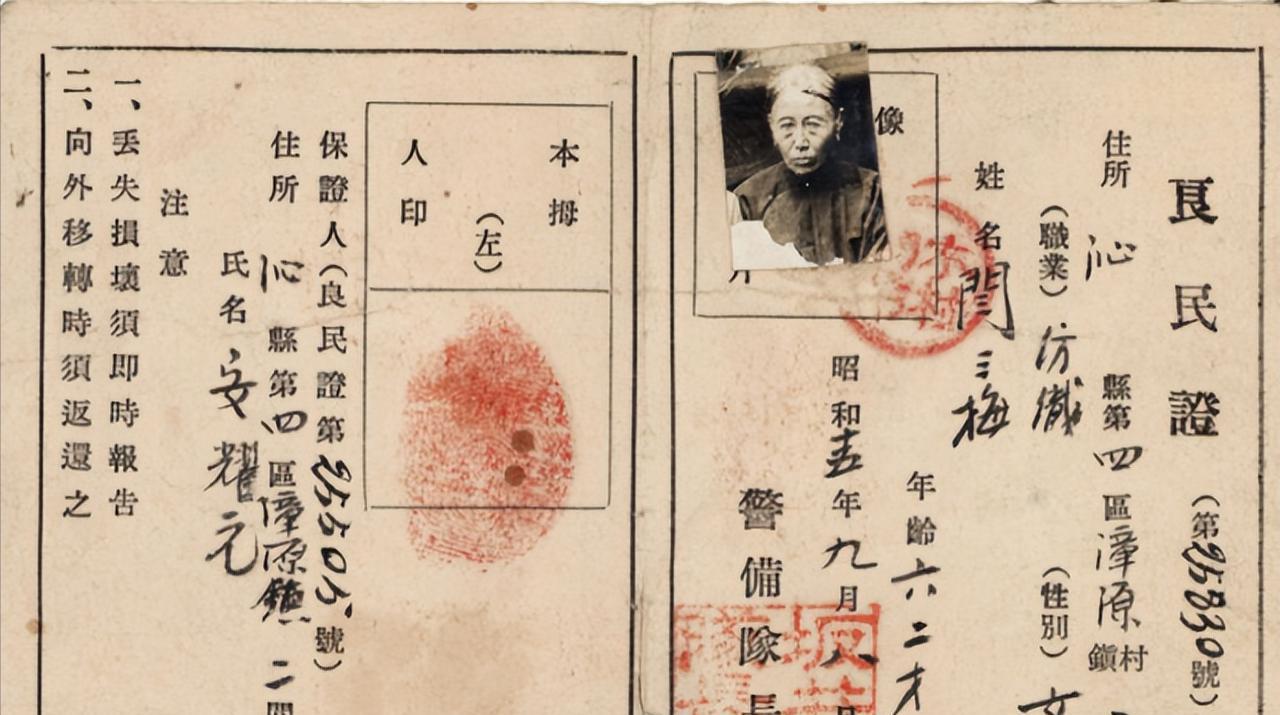 良民證（第25830號）
住所 沁 縣第四區漳源村鎮
（職業）紡織 （性別）女
姓名 閆三梅
年齡六二才
像
片
昭和 年九月八日
警備隊長
本拇
（左）
人印
保證人（良民證第25505號）
住所 沁 縣第四區漳源鎮 二閭
氏名 安耀元
注意
一、丟失損壞須即時報告
二、向外移轉時須返還之